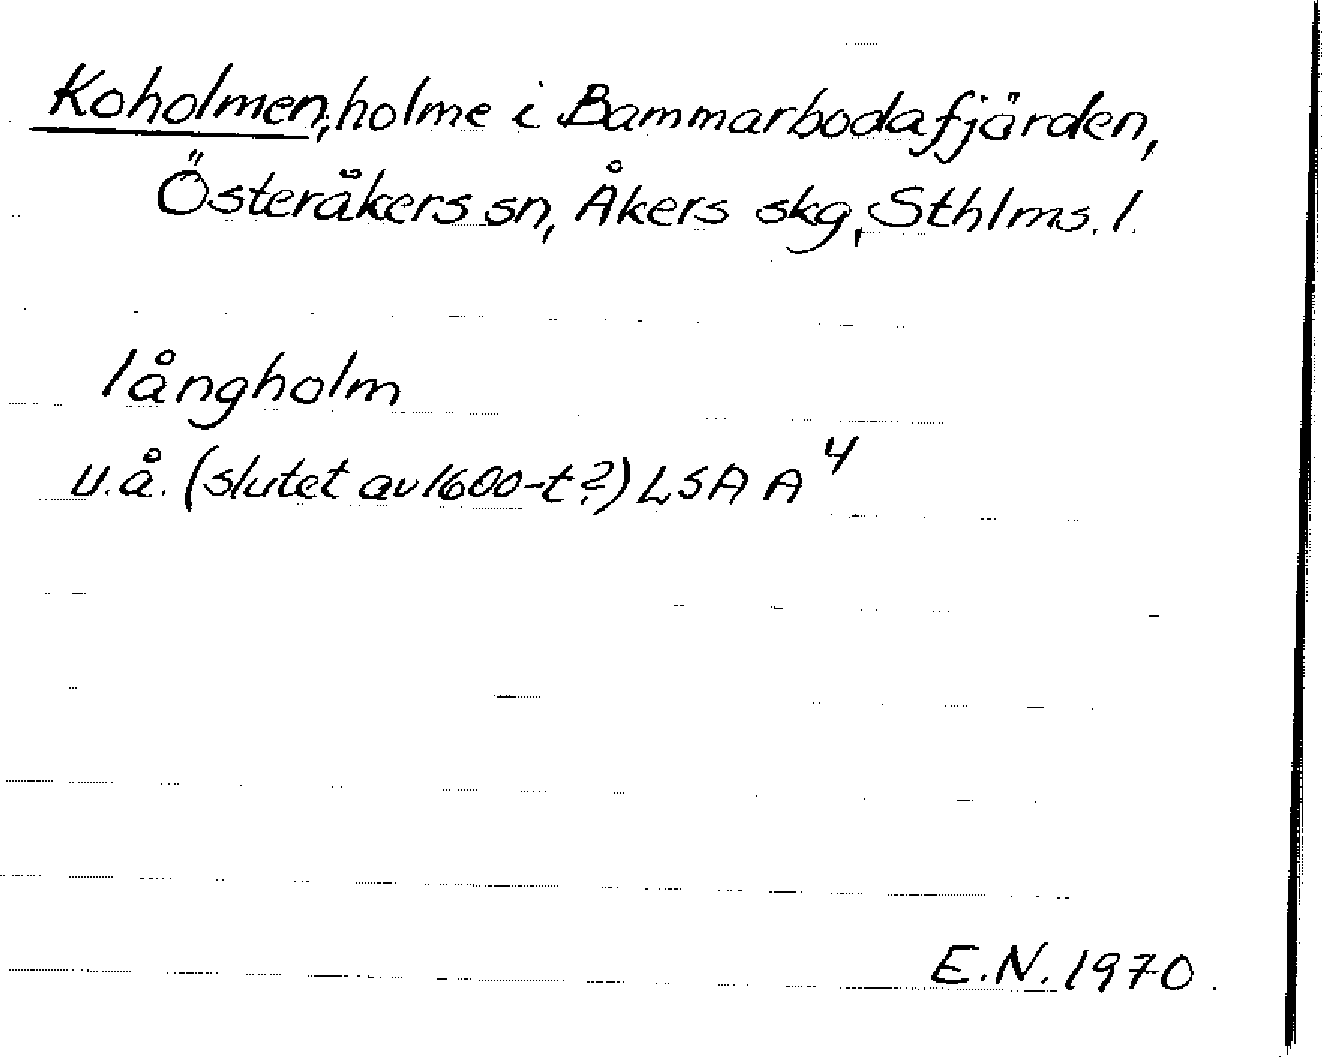 Koholmen, holme i Bammarbodafjärden,
Österåkers sn, Åkers skg, Sthlms. l.
långholm
u.å. (slutet av 1600-t?) LSA A⁴
E.N. 1970.